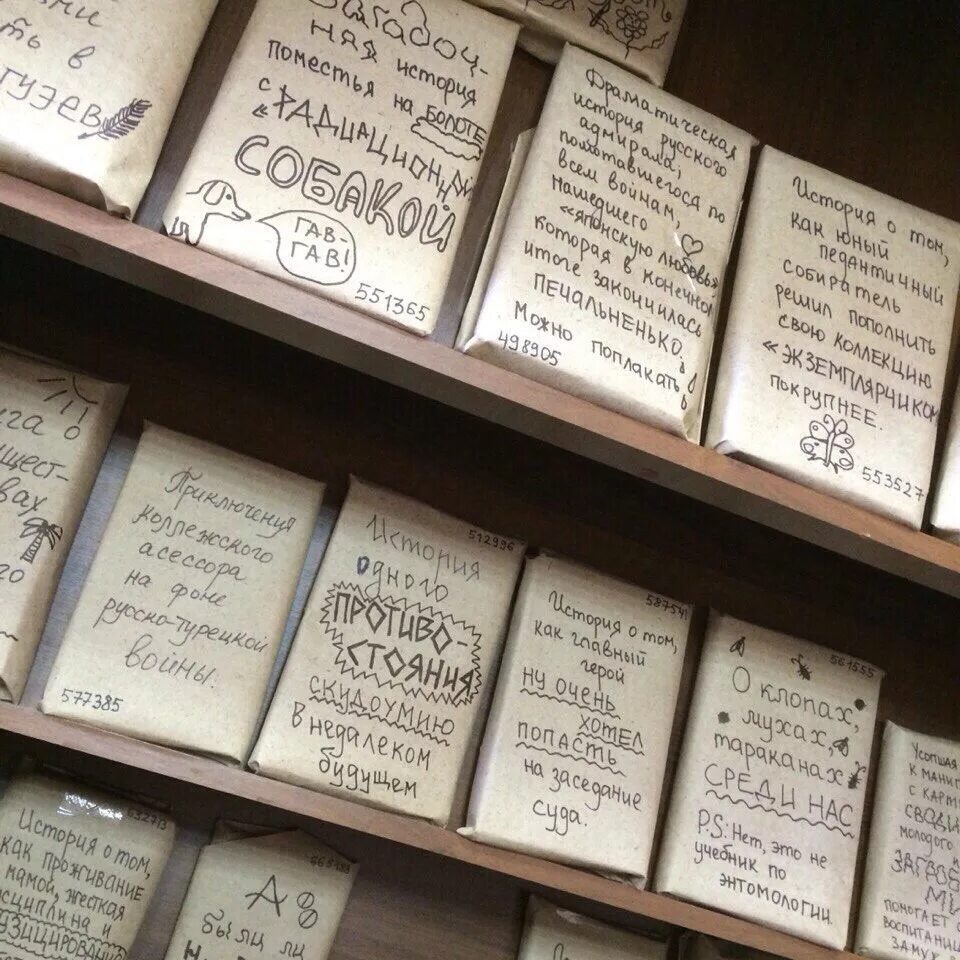 ть в
ГУЗЕВ
Загадоч-
ная история
поместья на БОЛОТЕ
с «РАДИАЦИОННОЙ
СОБАКОЙ
ГАВ-
ГАВ!
551365
Драматическая
история русского
адмирала,
помотавшегося по
всем войнам,
нашедшего
«японскую любовь»
которая в конечном
итоге закончилась
ПЕЧАЛЬНЕНЬКО.
Можно поплакать
498905
История о том,
как юный
педантичный
собиратель
решил пополнить
свою коллекцию
«ЭКЗЕМПЛЯРЧИКОМ
покрупнее.
553527
Приключения
коллежского
асессора
на фоне
русско-турецкой
войны.
577385
512996
История
одного
ПРОТИВО-
СТОЯНИЯ
СКУДОУМИЮ
в недалеком
будущем
587541
История о том,
как главный
герой
ну очень
хотел
попасть
на заседание
суда.
561555
О клопах,
мухах,
тараканах
СРЕДИ НАС
P.S: Нет, это не
учебник по
энтомологии.
Усопшая
к
с
молодого
помогает
воспитаниц
замуж
632713
История о том,
как проживание
мамой, жесткая
и
А
были ли